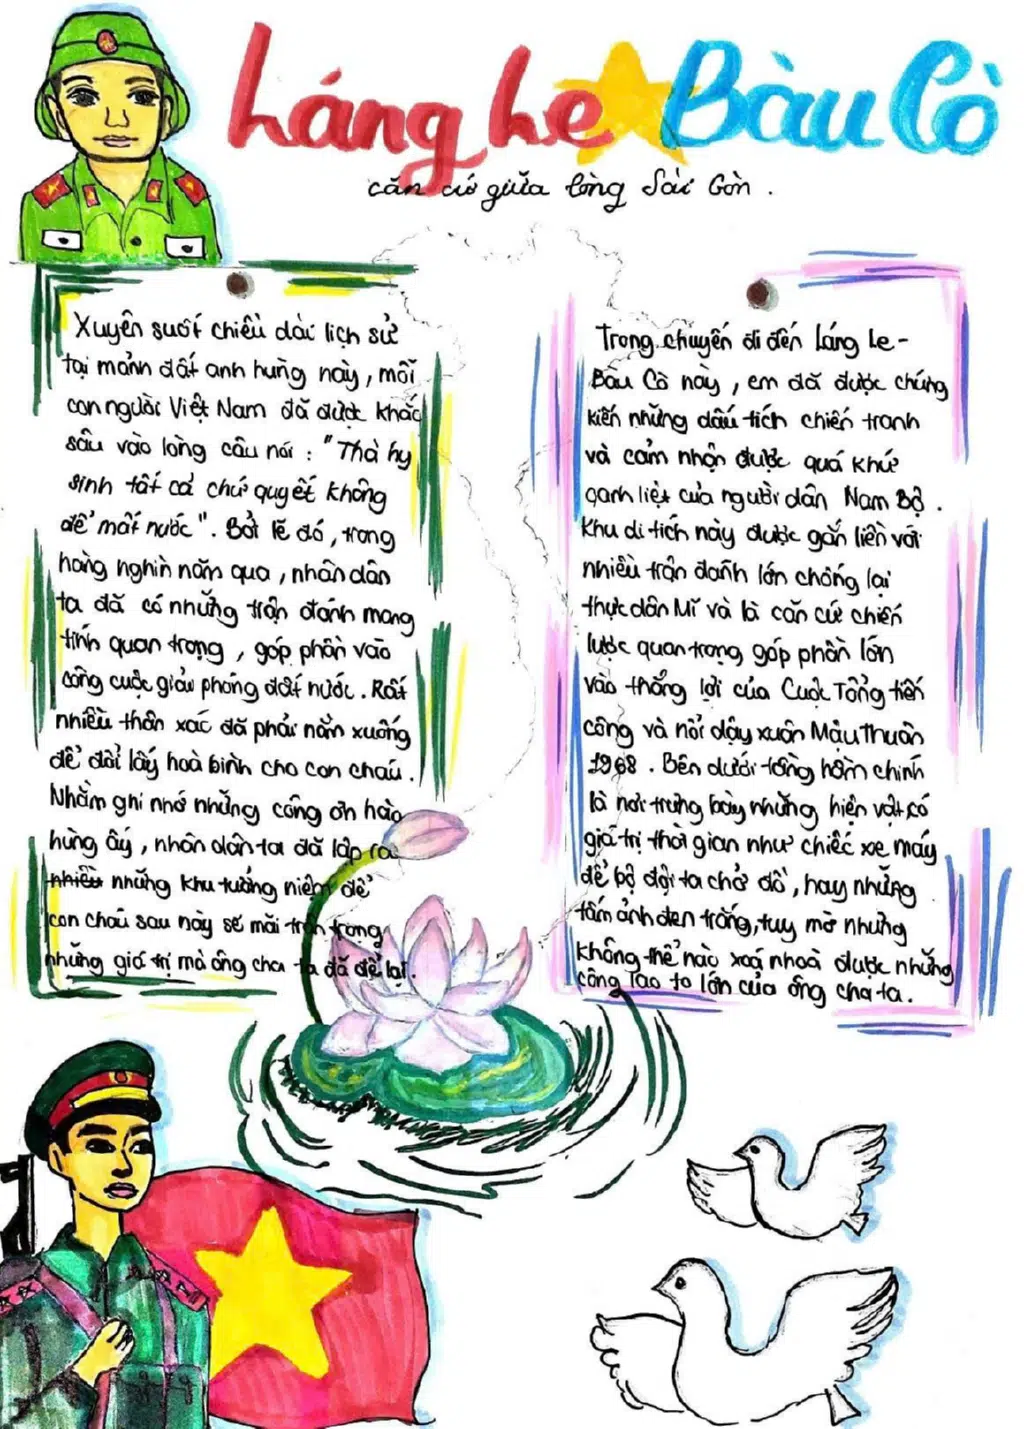 Láng Le Bàu Cò
căn cứ giữa lòng Sài Gòn .
Xuyên suốt chiều dài lịch sử
tại mảnh đất anh hùng này , mỗi
con người Việt Nam đã được khắc
sâu vào lòng câu nói : " Thà hy
sinh tất cả chứ quyết không
để mất nước " . Bởi lẽ đó , trong
hàng nghìn năm qua , nhân dân
ta đã có những trận đánh mang
tính quan trọng , góp phần vào
công cuộc giải phóng đất nước . Rất
nhiều thân xác đã phải nằm xuống
để đổi lấy hoà bình cho con cháu .
Nhằm ghi nhớ những công ơn hào
hùng ấy , nhân dân ta đã lập ra
nhiều những khu tưởng niệm để
con cháu sau này sẽ mãi trân trọng
những giá trị mà ông cha ta đã để lại .
Trong chuyến đi đến Láng Le -
Bàu Cò này , em đã được chứng
kiến những dấu tích chiến tranh
và cảm nhận được quá khứ
oanh liệt của người dân Nam Bộ .
Khu di tích này được gắn liền với
nhiều trận đánh lớn chống lại
thực dân Mĩ và là căn cứ chiến
lược quan trọng góp phần lớn
vào thắng lợi của Cuộc Tổng tiến
công và nổi dậy xuân Mậu Thuân
1968 . Bên dưới tầng hầm chính
là nơi trưng bày những hiện vật có
giá trị thời gian như chiếc xe máy
để bộ đội ta chở đồ , hay những
tấm ảnh đen trắng, tuy mờ nhưng
không thể nào xoá nhoà được những
công lao to lớn của ông cha ta .